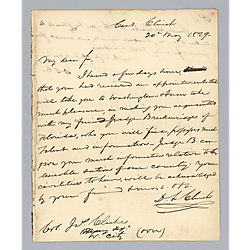 Cant. Clinch
20th May 1829.
My dear Sir,
I heard a few days
that you had received an appointment that
will take you to Washington I have
much pleasure in making you acquainted
with my friend Judge Breckenridge of
Florida, who you will find possesses much
talent and information. Judge B. can
give you much information relative to the
of our country. Your
civilities to him will be acknowledged
by your friend
D. L. Clinch
Col. Jno.
(over)
W. City